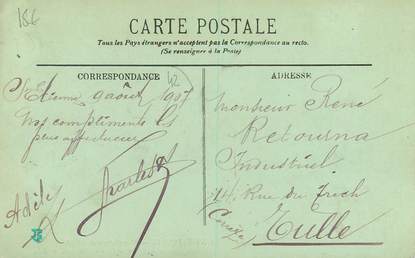 18€
CARTE POSTALE
Tous les Pays étrangers n'acceptent pas la Correspondance au recto.
(Se renseigner à la Poste)
CORRESPONDANCE
42
ADRESSE
St Etienne 9 août 1907
Nos compliments les
plus affectueux
Adèle
Monsieur René
Retourna
Industriel
14, Rue du Trech
Corrèze
Tulle